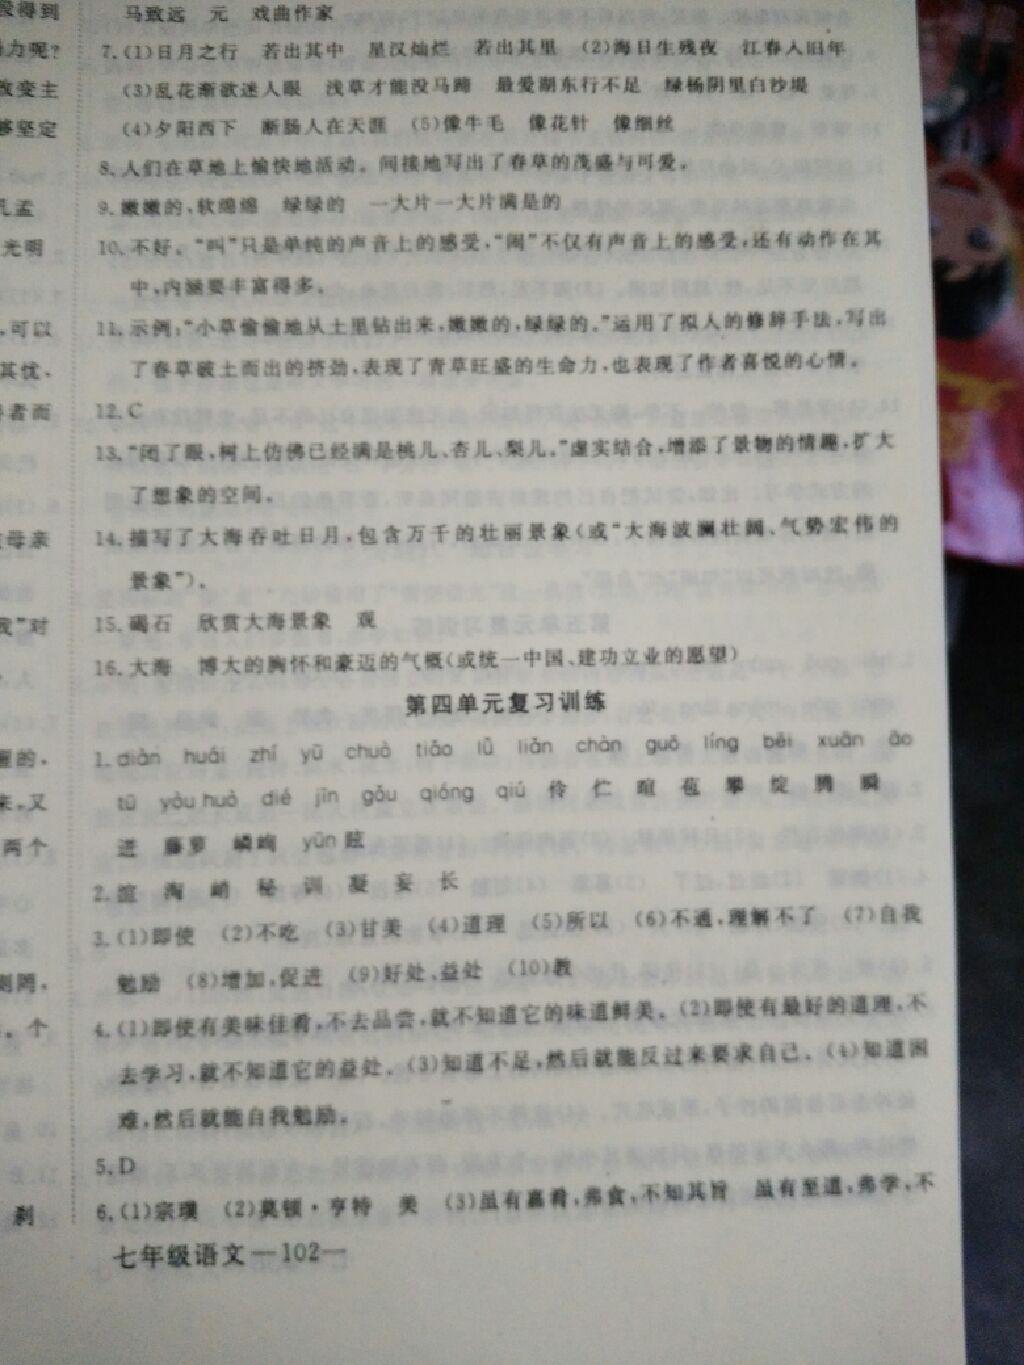 没得到
力呢?
改变主
够坚定
孔孟
光明
,可以
其忧,
者而
母亲
我"对
丽的,
来,又
两个
则罔,
。个
刹
马致远 元 戏曲作家
7.(1)日月之行 若出其中 星汉灿烂 若出其里 (2)海日生残夜 江春入旧年
(3)乱花渐欲迷人眼 浅草才能没马蹄 最爱湖东行不足 绿杨阴里白沙堤
(4)夕阳西下 断肠人在天涯 (5)像牛毛 像花针 像细丝
8.人们在草地上愉快地活动。间接地写出了春草的茂盛与可爱。
9.嫩嫩的,软绵绵 绿绿的 一大片一大片满是的
10.不好。"叫"只是单纯的声音上的感受,"闹"不仅有声音上的感受,还有动作在其
中,内涵要丰富得多。
11.示例:"小草偷偷地从土里钻出来,嫩嫩的,绿绿的。"运用了拟人的修辞手法,写出
了春草破土而出的挤劲,表现了青草旺盛的生命力,也表现了作者喜悦的心情。
12.C
13."闭了眼,树上仿佛已经满是桃儿、杏儿、梨儿。"虚实结合,增添了景物的情趣,扩大
了想象的空间。
14.描写了大海吞吐日月,包含万千的壮丽景象(或"大海波澜壮阔、气势宏伟的
景象")。
15.碣石 欣赏大海景象 观
16.大海 博大的胸怀和豪迈的气概(或统一中国、建功立业的愿望)
第四单元复习训练
1.diàn huái zhí yū chuò tiǎo lǜ liǎn chàn guō líng bèi xuān āo
tū yòu huò dié jīn gǒu qióng qiú 伶 伫 暄 苞 攀 绽 腾 瞬
迸 藤萝 嶙峋 yūn眩
2.渲 淘 峭 秘 训 凝 妄 长
3.(1)即使 (2)不吃 (3)甘美 (4)道理 (5)所以 (6)不通,理解不了 (7)自我
勉励 (8)增加,促进 (9)好处,益处 (10)教
4.(1)即使有美味佳肴,不去品尝,就不知道它的味道鲜美。(2)即使有最好的道理,不
去学习,就不知道它的益处。(3)知道不足,然后就能反过来要求自己。(4)知道困
难,然后就能自我勉励。
5.D
6.(1)宗璞 (2)莫顿·亨特 美 (3)虽有嘉肴,弗食,不知其旨 虽有至道,弗学,不
七年级语文—102—